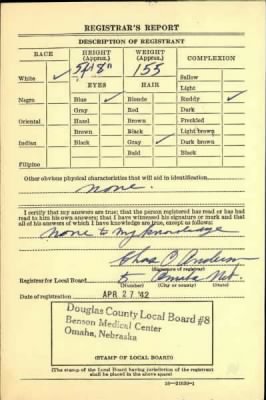 REGISTRAR'S REPORT
DESCRIPTION OF REGISTRANT
RACE HEIGHT (Approx.) WEIGHT (Approx.) COMPLEXION
5ft 8" 155
White ✓ Sallow
EYES HAIR Light
Negro Blue ✓ Blonde Ruddy ✓
Gray Red Dark
Oriental Hazel Brown Freckled
Brown Black Light brown
Indian Black Gray ✓ Dark brown
Bald Black
Filipino
Other obvious physical characteristics that will aid in identification
None.
I certify that my answers are true; that the person registered has read or has had
read to him his own answers; that I have witnessed his signature or mark and that
all of his answers of which I have knowledge are true, except as follows:
None to my knowledge
Chas O
(Signature of registrar)
Registrar for Local Board Omaha Neb.
(Number) (City or county) (State)
Date of registration APR 27 '42
Douglas County Local Board #8
Benson Medical Center
Omaha, Nebraska
(STAMP OF LOCAL BOARD)
(The stamp of the Local Board having jurisdiction of the registrant
shall be placed in the above space)